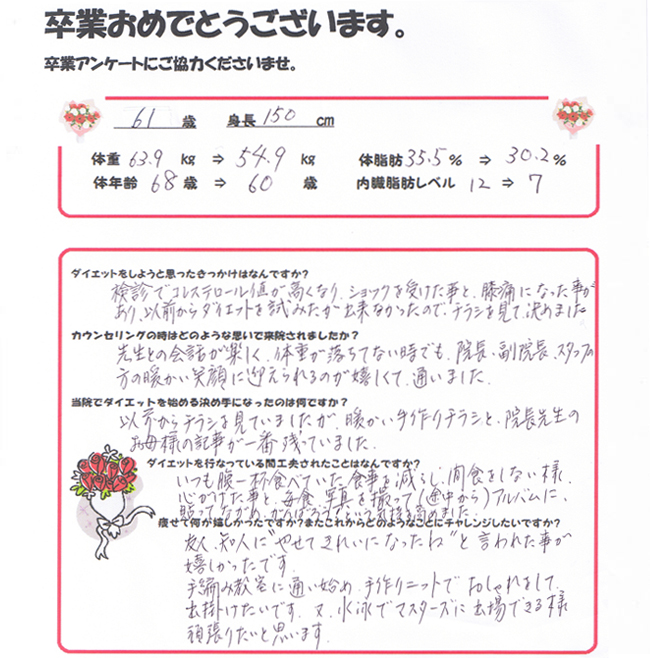 卒業おめでとうございます。
卒業アンケートにご協力くださいませ。
61 歳 身長 150 cm
体重 63.9 kg ⇒ 54.9 kg 体脂肪 35.5 % ⇒ 30.2 %
体年齢 68 歳 ⇒ 60 歳 内臓脂肪レベル 12 ⇒ 7
ダイエットをしようと思ったきっかけはなんですか?
検診でコレステロール値が高くなり、ショックを受けた事と、膝痛になった事が
あり、以前からダイエットを試みたが出来なかったので、チラシを見て決めました
カウンセリングの時はどのような思いで来院されましたか?
先生との会話が楽しく、体重が落ちてない時でも、院長、副院長、スタッフの
方の暖かい笑顔に迎えられるのが嬉しくて、通いました。
当院でダイエットを始める決め手になったのは何ですか?
以前からチラシを見ていましたが、暖かい手作りチラシと、院長先生の
お母様の記事が一番残っていました。
ダイエットを行なっている間工夫されたことはなんですか?
いつも腹一杯食べていた食事を減らし、間食をしない様、
心がけた事と、毎食、写真を撮って(途中から)アルバムに、
貼ってながめ、がんばろうという気持を高めました。
痩せて何が嬉しかったですか?またこれからどのようなことにチャレンジしたいですか?
友人、知人に"やせてきれいになったね"と言われた事が
嬉しかったです。
手編み教室に通い始め、手作りニットでおしゃれをして、
出掛けたいです。又、水泳でマスターズに出場できる様
頑張りたいと思います。